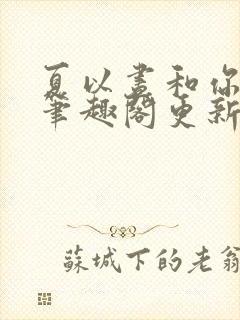 夏以昼和你
笔趣阁更新
苏城下的老翁